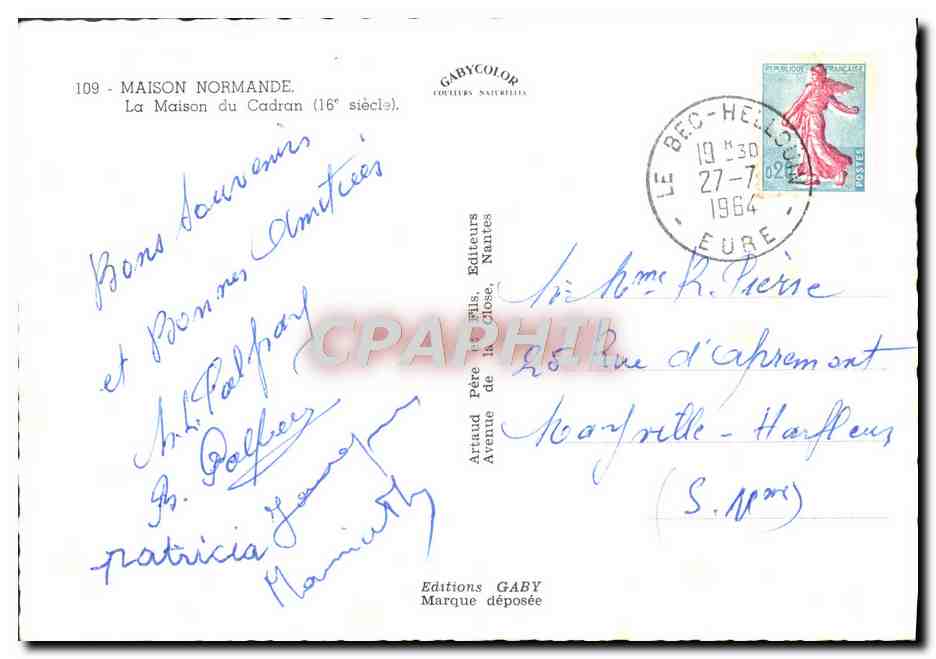 109 - MAISON NORMANDE.
La Maison du Cadran (16e siècle).
GABYCOLOR
COULEURS NATURELLES
REPUBLIQUE FRANÇAISE
0,20
POSTES
LE BEC-HELLOUIN
19 H 30
27-7
1964
- EURE -
Bons Souvenirs
et Bonnes Amitiés
Patricia
Artaud Père et Fils, Editeurs
Avenue de la Close, Nantes
Mr Mme R. Pierre
25 Rue d'Apremont
Mayville - Harfleur
(S. Mme)
CPAPHIL
Editions GABY
Marque déposée